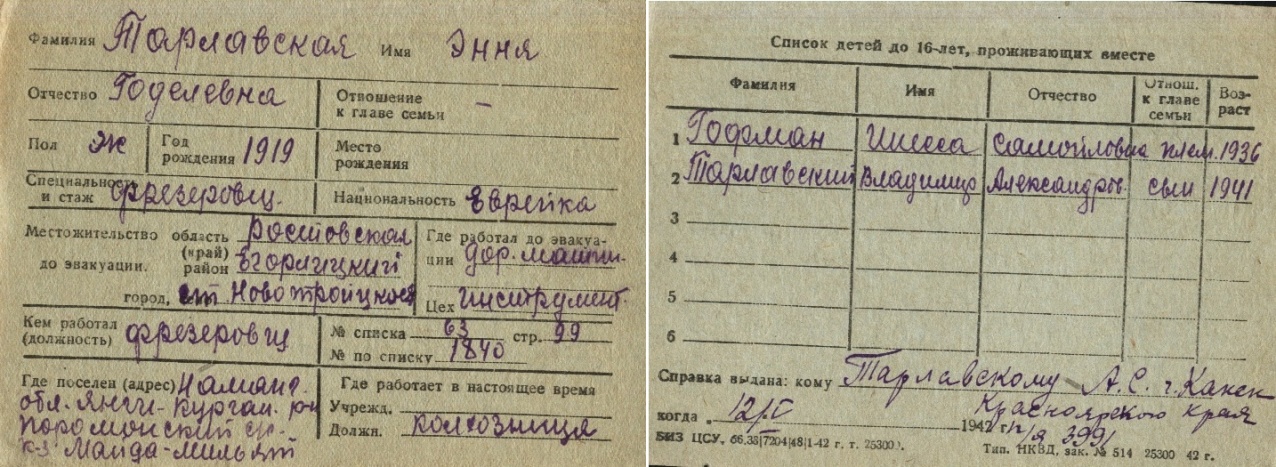 Фамилия Тарлавская Имя Эння
Отчество Годелевна Отношение к главе семьи –
Пол Ж Год рождения 1919 Место рождения
Специальность и стаж фрезеровщ. Национальность Еврейка
Местожительство область Ростовская
до эвакуации. (край) район Егорлицкий
город, ст Новотройцкое
Где работал до эвакуации дор. машин.
Цех инструмент.
Кем работал (должность) фрезеровщ
№ списка 63 стр. 99
№ по списку 1840
Где поселен (адрес) Наманг.
обл. Янги-Курган. рн
к-з Майда-Мильят
Где работает в настоящее время
Учрежд.
Должн. колхозница
Список детей до 16-лет, проживающих вместе
Фамилия Имя Отчество Отнош. к главе семьи Возраст
1 Гофман Инесса Самойловна плем. 1936
2 Тарлавский Владимир Александров. сын 1941
3
4
5
6
Справка выдана: кому Тарлавскому А.С. г. Канск
Красноярского края
когда 12/V 1942 г. п/я 3991
БИЗ ЦСУ, 66.38|7204|48|1-42 г. т. 25300
Тип. НКВД, зак. № 514 25300 42 г.